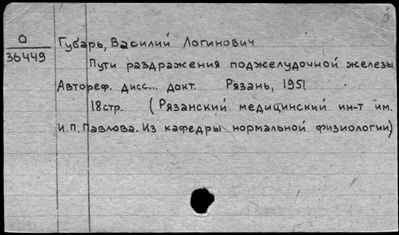 О
36449
Губарь, Василий Логинович
Пути раздражения поджелудочной железы
Автореф. дисс... докт. Рязань, 1951
18стр. (Рязанский медицинский ин-т им.
И.П. Павлова. Из кафедры нормальной физиологии)